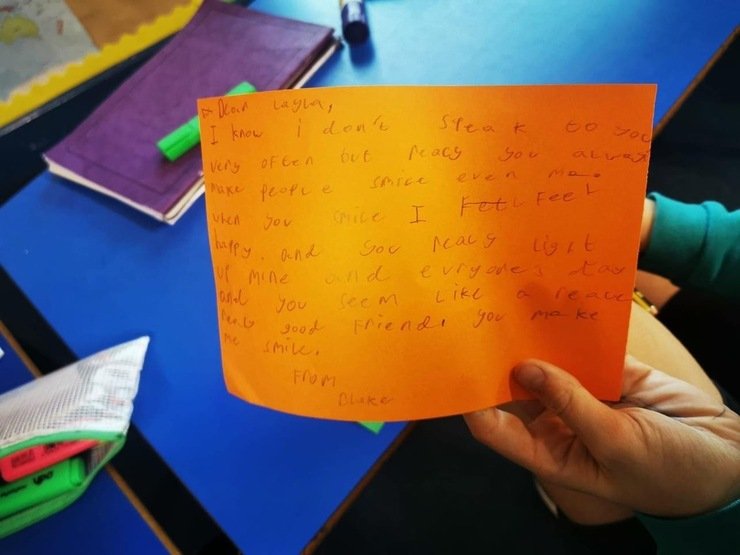 Dear Layla,
I know i don't speak to you
very often but reacy you always
make people smice even me.
when you smice I Feel Feel
happy. and you reacy Light
up mine and evryones day
and you seem like a
realy good Friend. you make
me smile.
From
Blake